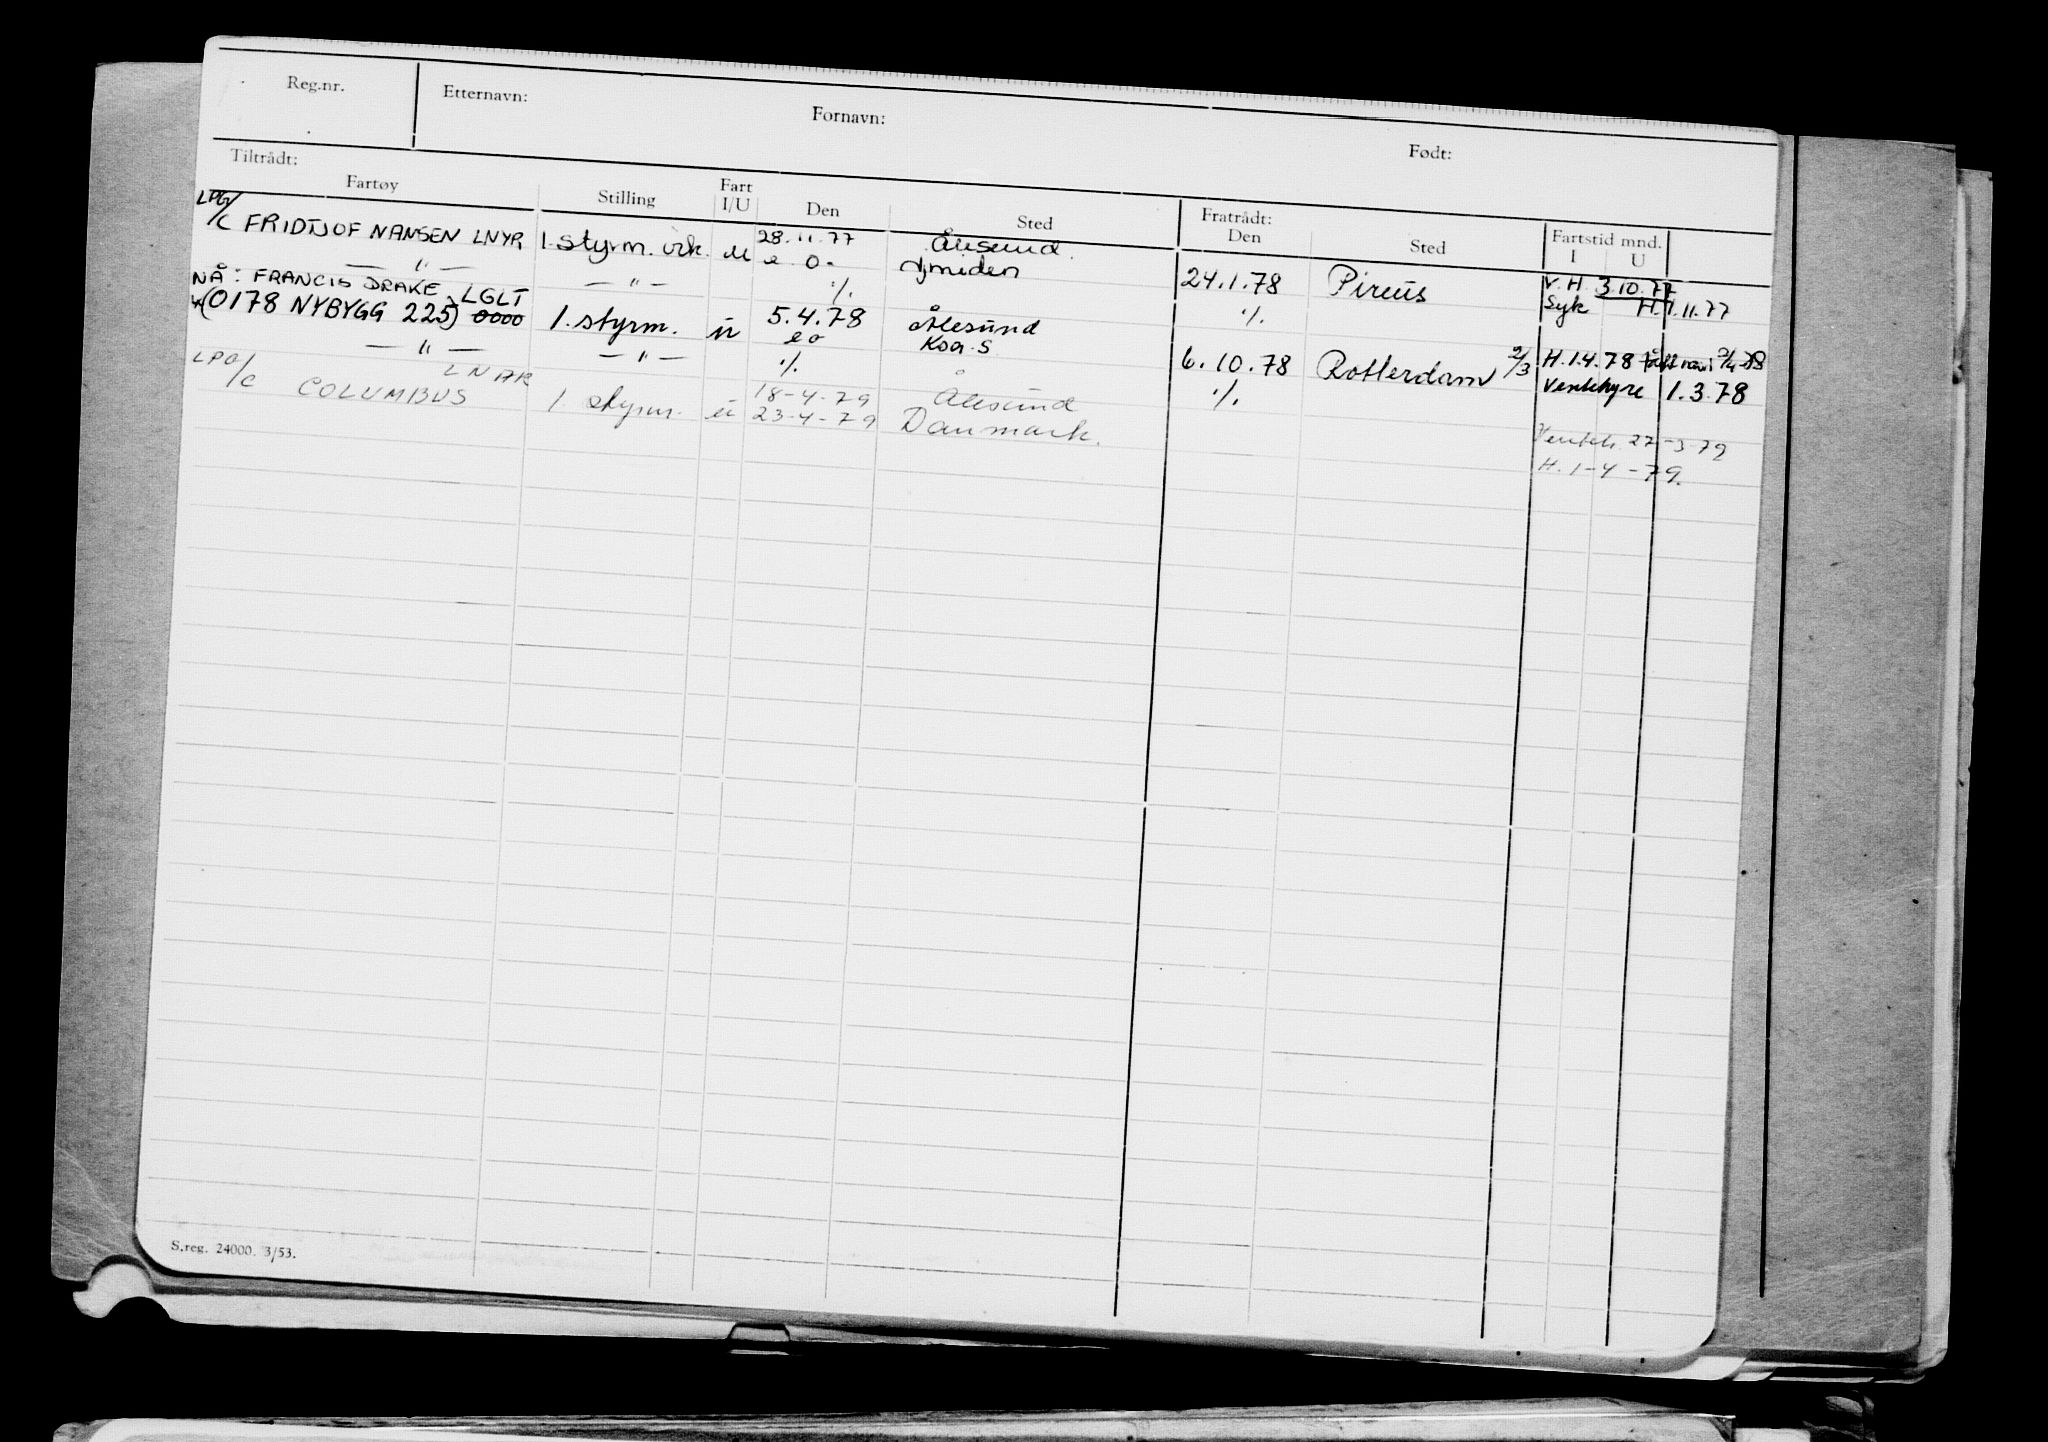 Reg.nr. Etternavn: Fornavn: Født:
Tiltrådt: Fratrådt:
Fartøy Stilling Fart I/U Den Sted Den Sted Fartstid mnd. I U
LPG/C FRIDTJOF NANSEN LNYR 1. styrm. vik. u 28.11.77 Ålesund V.H. 3.10.77
— " — — " — e.o. Ijmuiden 24.1.78 Pireus Syk H. 1.11.77
NÅ: FRANCIS DRAKE LGLT ./.
(0178 NYBYGG 225) 0000 1. styrm. u 5.4.78 Ålesund ./.
— " — — " — e o Koa. S. 6.10.78 Rotterdam 2/3 H. 1.4.78
LPG/C COLUMBUS LNAK 1. styrm. u ./. 18-4-79 Ålesund ./. Ventehyre 1.3.78
23-4-79 Danmark.
Venteh. 27-3-79
H. 1-4-79.
S.reg. 24000. 3/53.